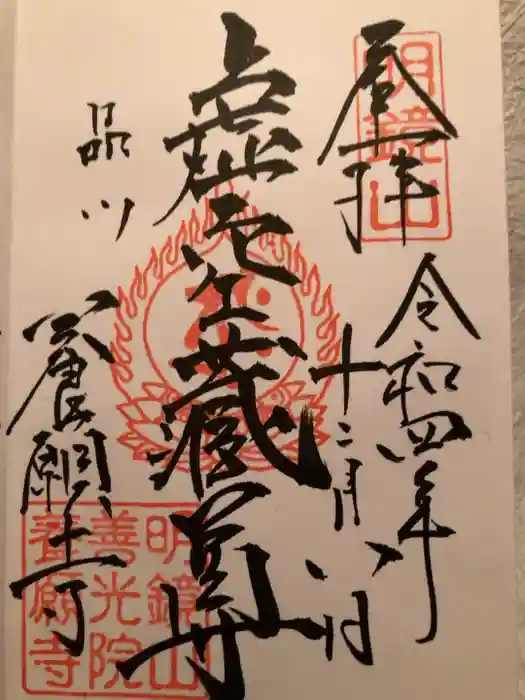 奉拝
明鏡山
令和四年
十二月八日
虚空蔵尊
品川
養願寺
明鏡山
善光院
養願寺